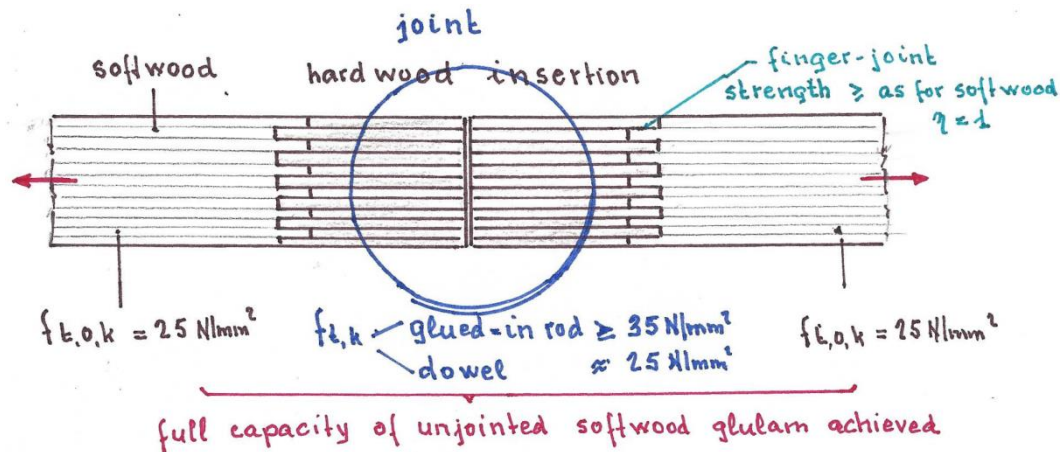 joint
softwood
hardwood insertion
finger-joint
strength ≥ as for softwood
η = 1
f t,0,k = 25 N/mm²
f t,k glued-in rod ≥ 35 N/mm²
dowel ≈ 25 N/mm²
f t,0,k = 25 N/mm²
full capacity of unjointed softwood glulam achieved